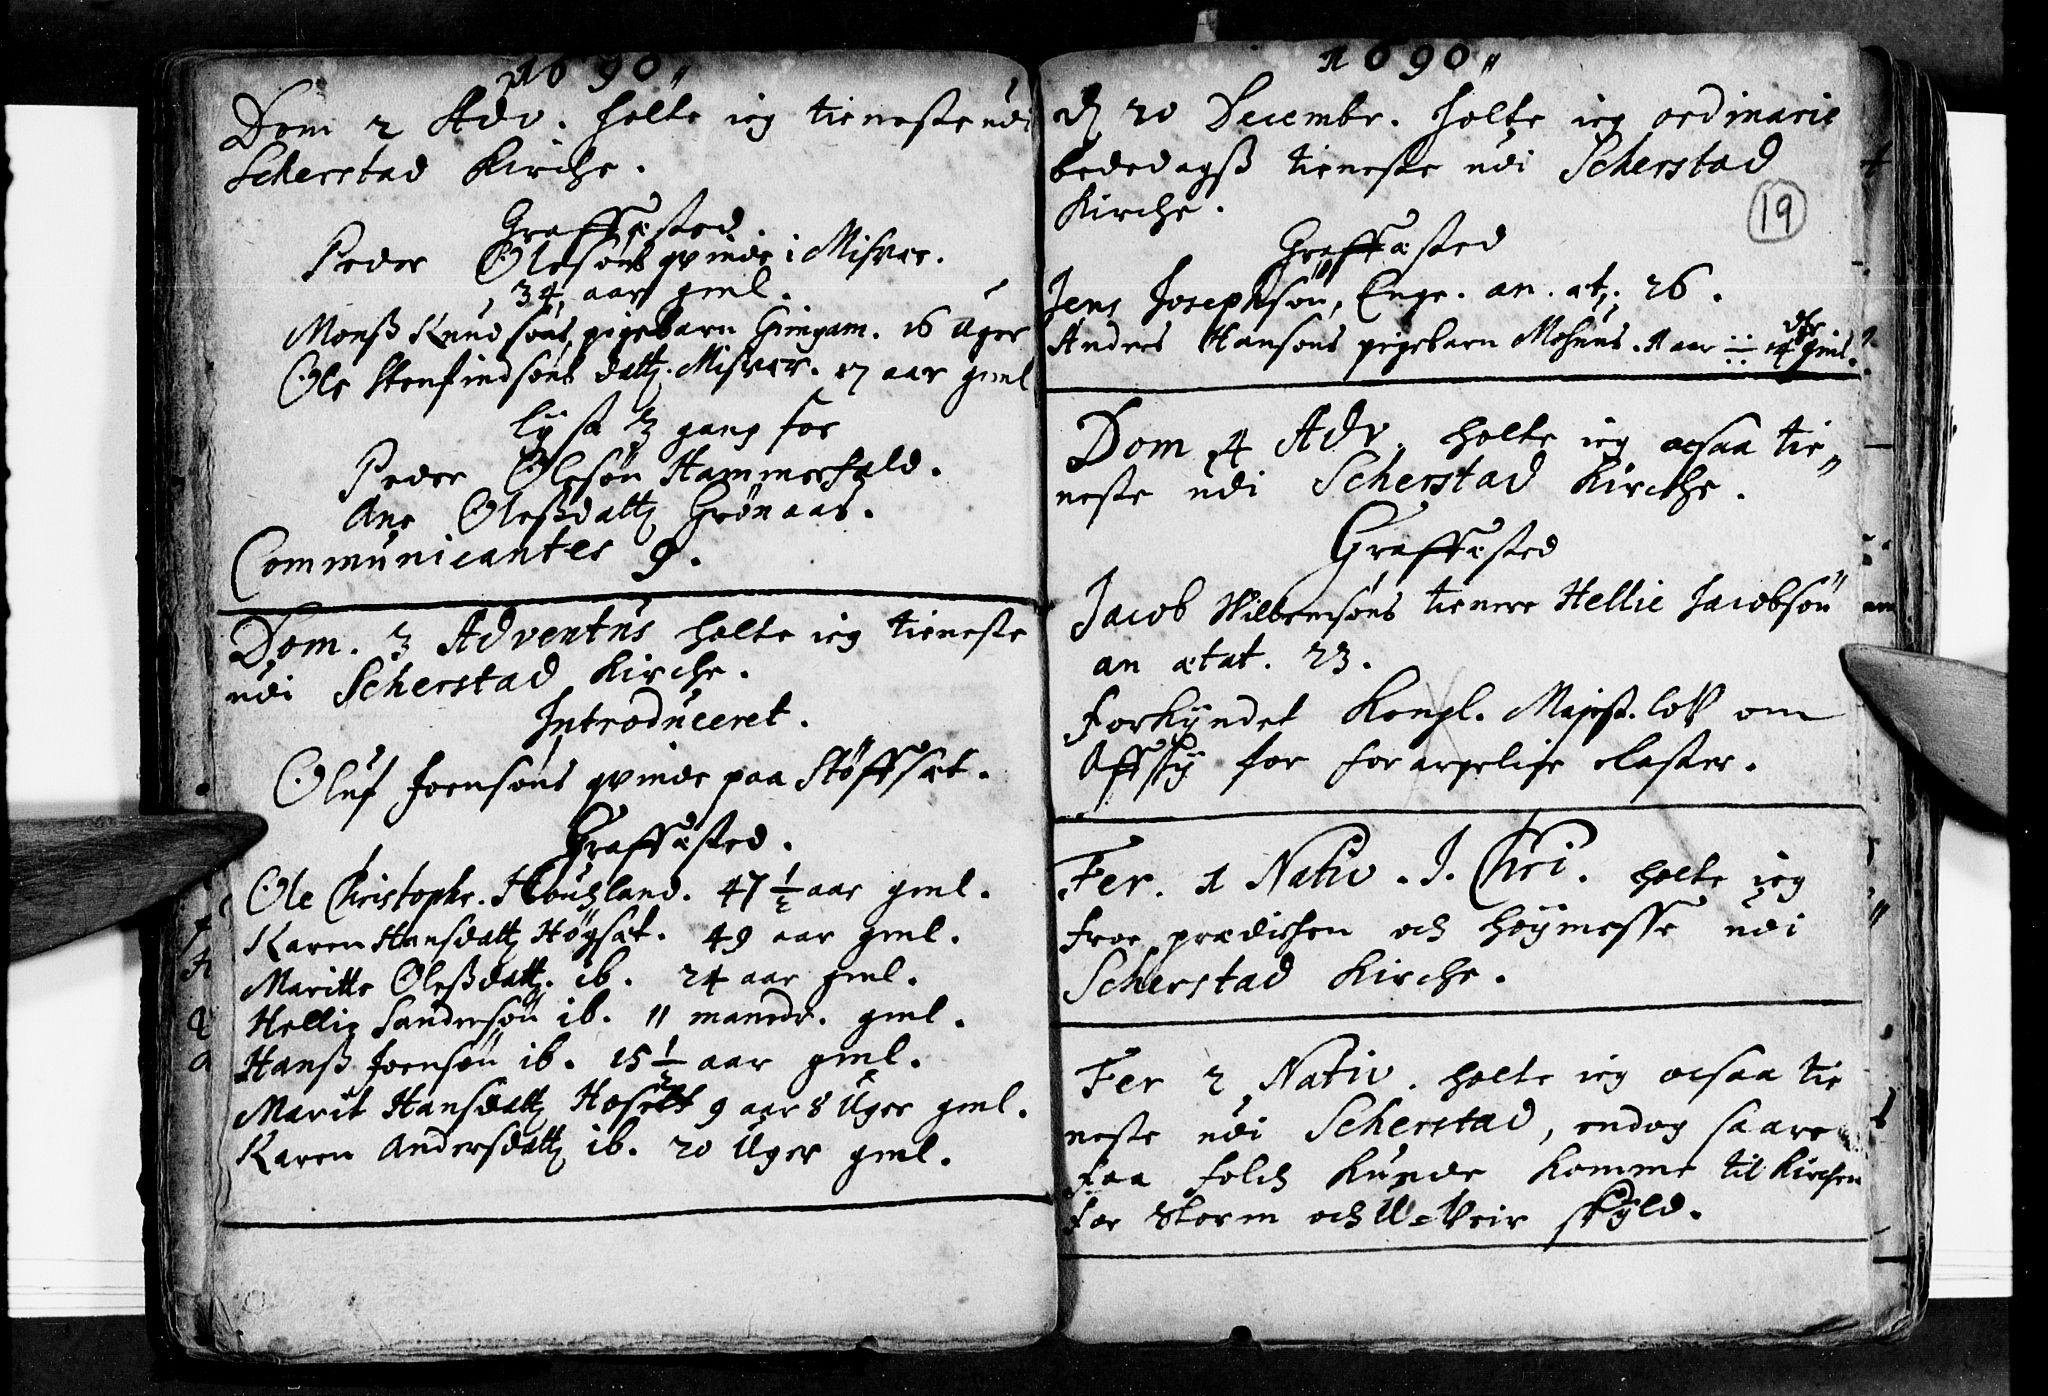 1690
Dom 2 Adv. holte ieg tieneste udi
Scherstad Kirche.
Graffæsted.
Peder Olesöns qvinde i Misvær.
34 aar gml.
Monß Knudsöns pigebarn Gimgam. 16 Uger
Ole Stenfindsöns datt. Misvær. 17 aar gml
lyst 3 gang for
Peder Olesön Hammerfald.
Ane Oleßdatt Grönaas.
Communicantes 9.
Dom. 3 Adventus holte ieg tieneste
udi Scherstad Kirche.
Introduceret.
Oluf Joensöns qvinde paa Stöffsæt.
Graffæsted.
Ole Christophr. 47 1/2 aar gml.
Karen Hansdatt Högsæt. 49 aar gml.
Maritte Oleßdatt. ib. 24 aar gml.
Hellie Sandersön ib. 11 maneder. gml.
Hanß Joensön ib. 15 1/2 aar gml.
Marit Hansdatt 9 aar 8 Uger gml.
Karen Andersdatt ib. 20 Uger gml.
1690
d 20 Decembr. holte ieg ordinarie
bededagß tieneste udi Scherstad
Kirche.
19
Graffæsted
Jens Josephsön, Enge. an. æt. 26.
Anders Hansöns pigebarn Mohuus. 1 aar 14 gml.
Dom 4 Adv. holte ieg ocsaa tie
neste udi Scherstad Kirche.
Graffæsted
Jacob Wilbemsöns tienere Hellie Jacobsön
an ætat. 23.
Forkyndet Kongl. Majest. lov om
Affsky for forargelige laster.
Fer. 1 Nativ. J. Chri. holte ieg
froe prædichen och höymesse udi
Scherstad Kirche.
Fer 2 Nativ. holte ieg ocsaa tie
neste udi Scherstad, endog saare
faa folch kunde komme til Kirchen
for Storm och U-Veir skyld.